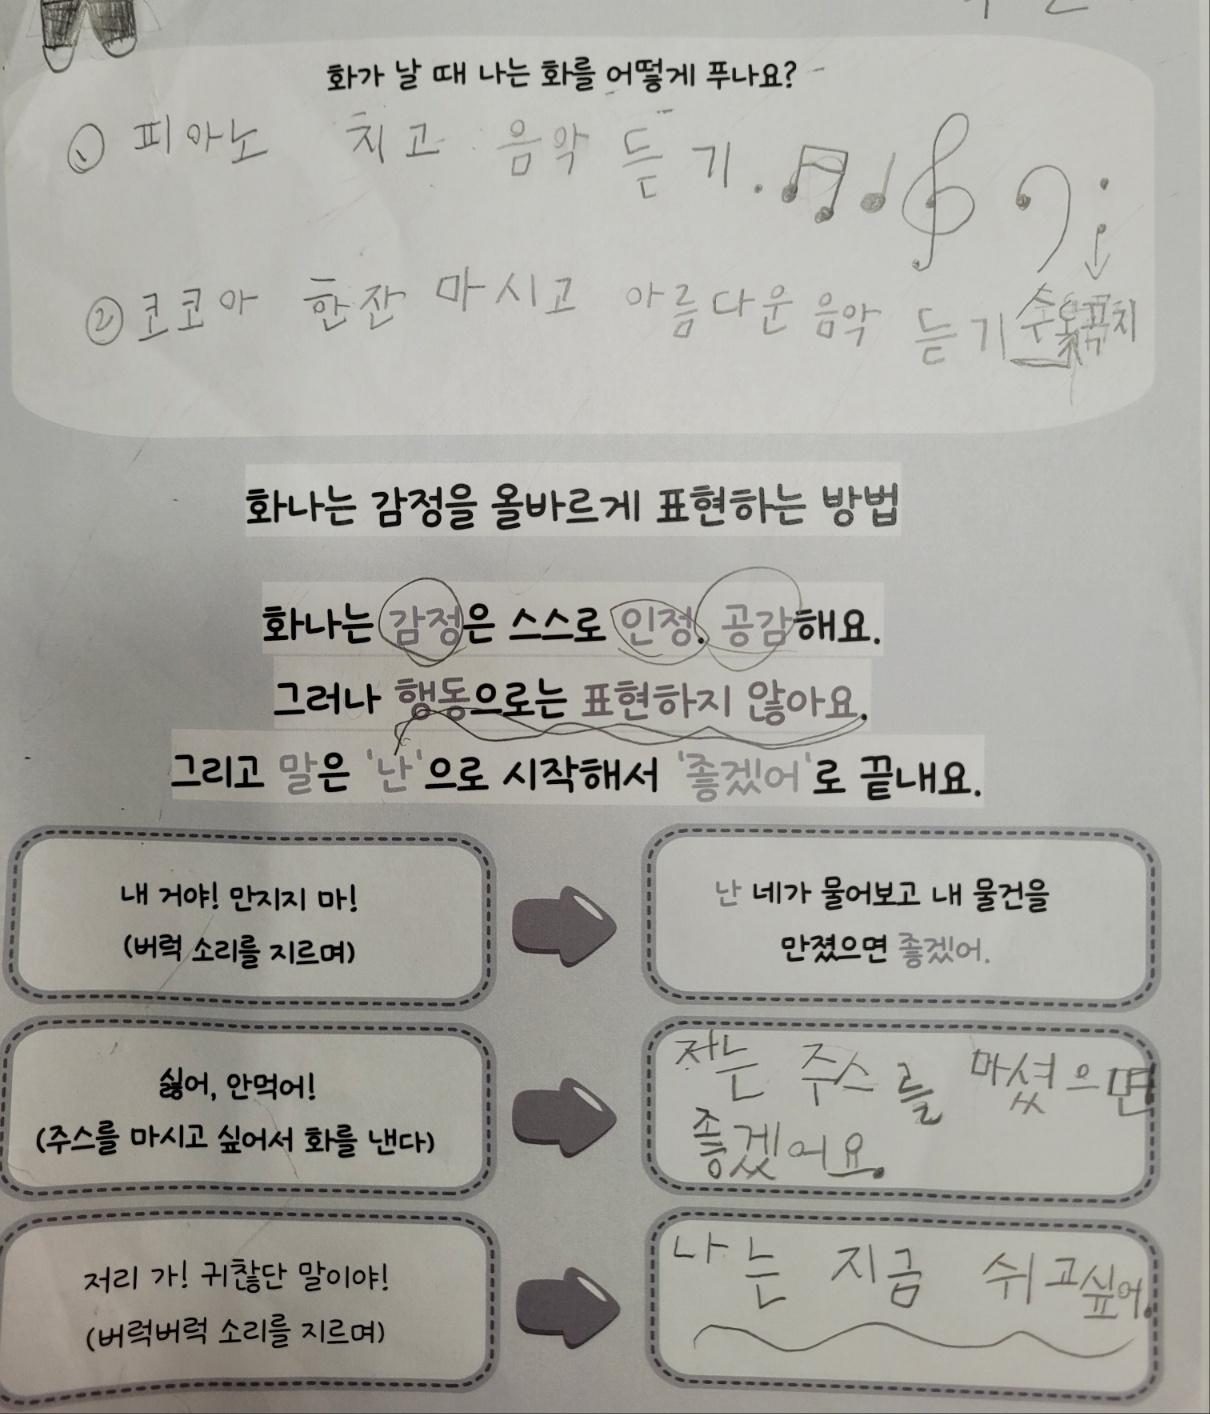 화가 날 때 나는 화를 어떻게 푸나요?
① 피아노 치고 음악 듣기.
② 코코아 한잔 마시고 아름다운 음악 듣기
화나는 감정을 올바르게 표현하는 방법
화나는 감정은 스스로 인정. 공감해요.
그러나 행동으로는 표현하지 않아요.
그리고 말은 '난'으로 시작해서 '좋겠어'로 끝내요.
내 거야! 만지지 마!
(버럭 소리를 지르며)
난 네가 물어보고 내 물건을
만졌으면 좋겠어.
싫어, 안먹어!
(주스를 마시고 싶어서 화를 낸다)
저는 주스를 마셨으면
좋겠어요.
저리 가! 귀찮단 말이야!
(버럭버럭 소리를 지르며)
나는 지금 쉬고싶어.